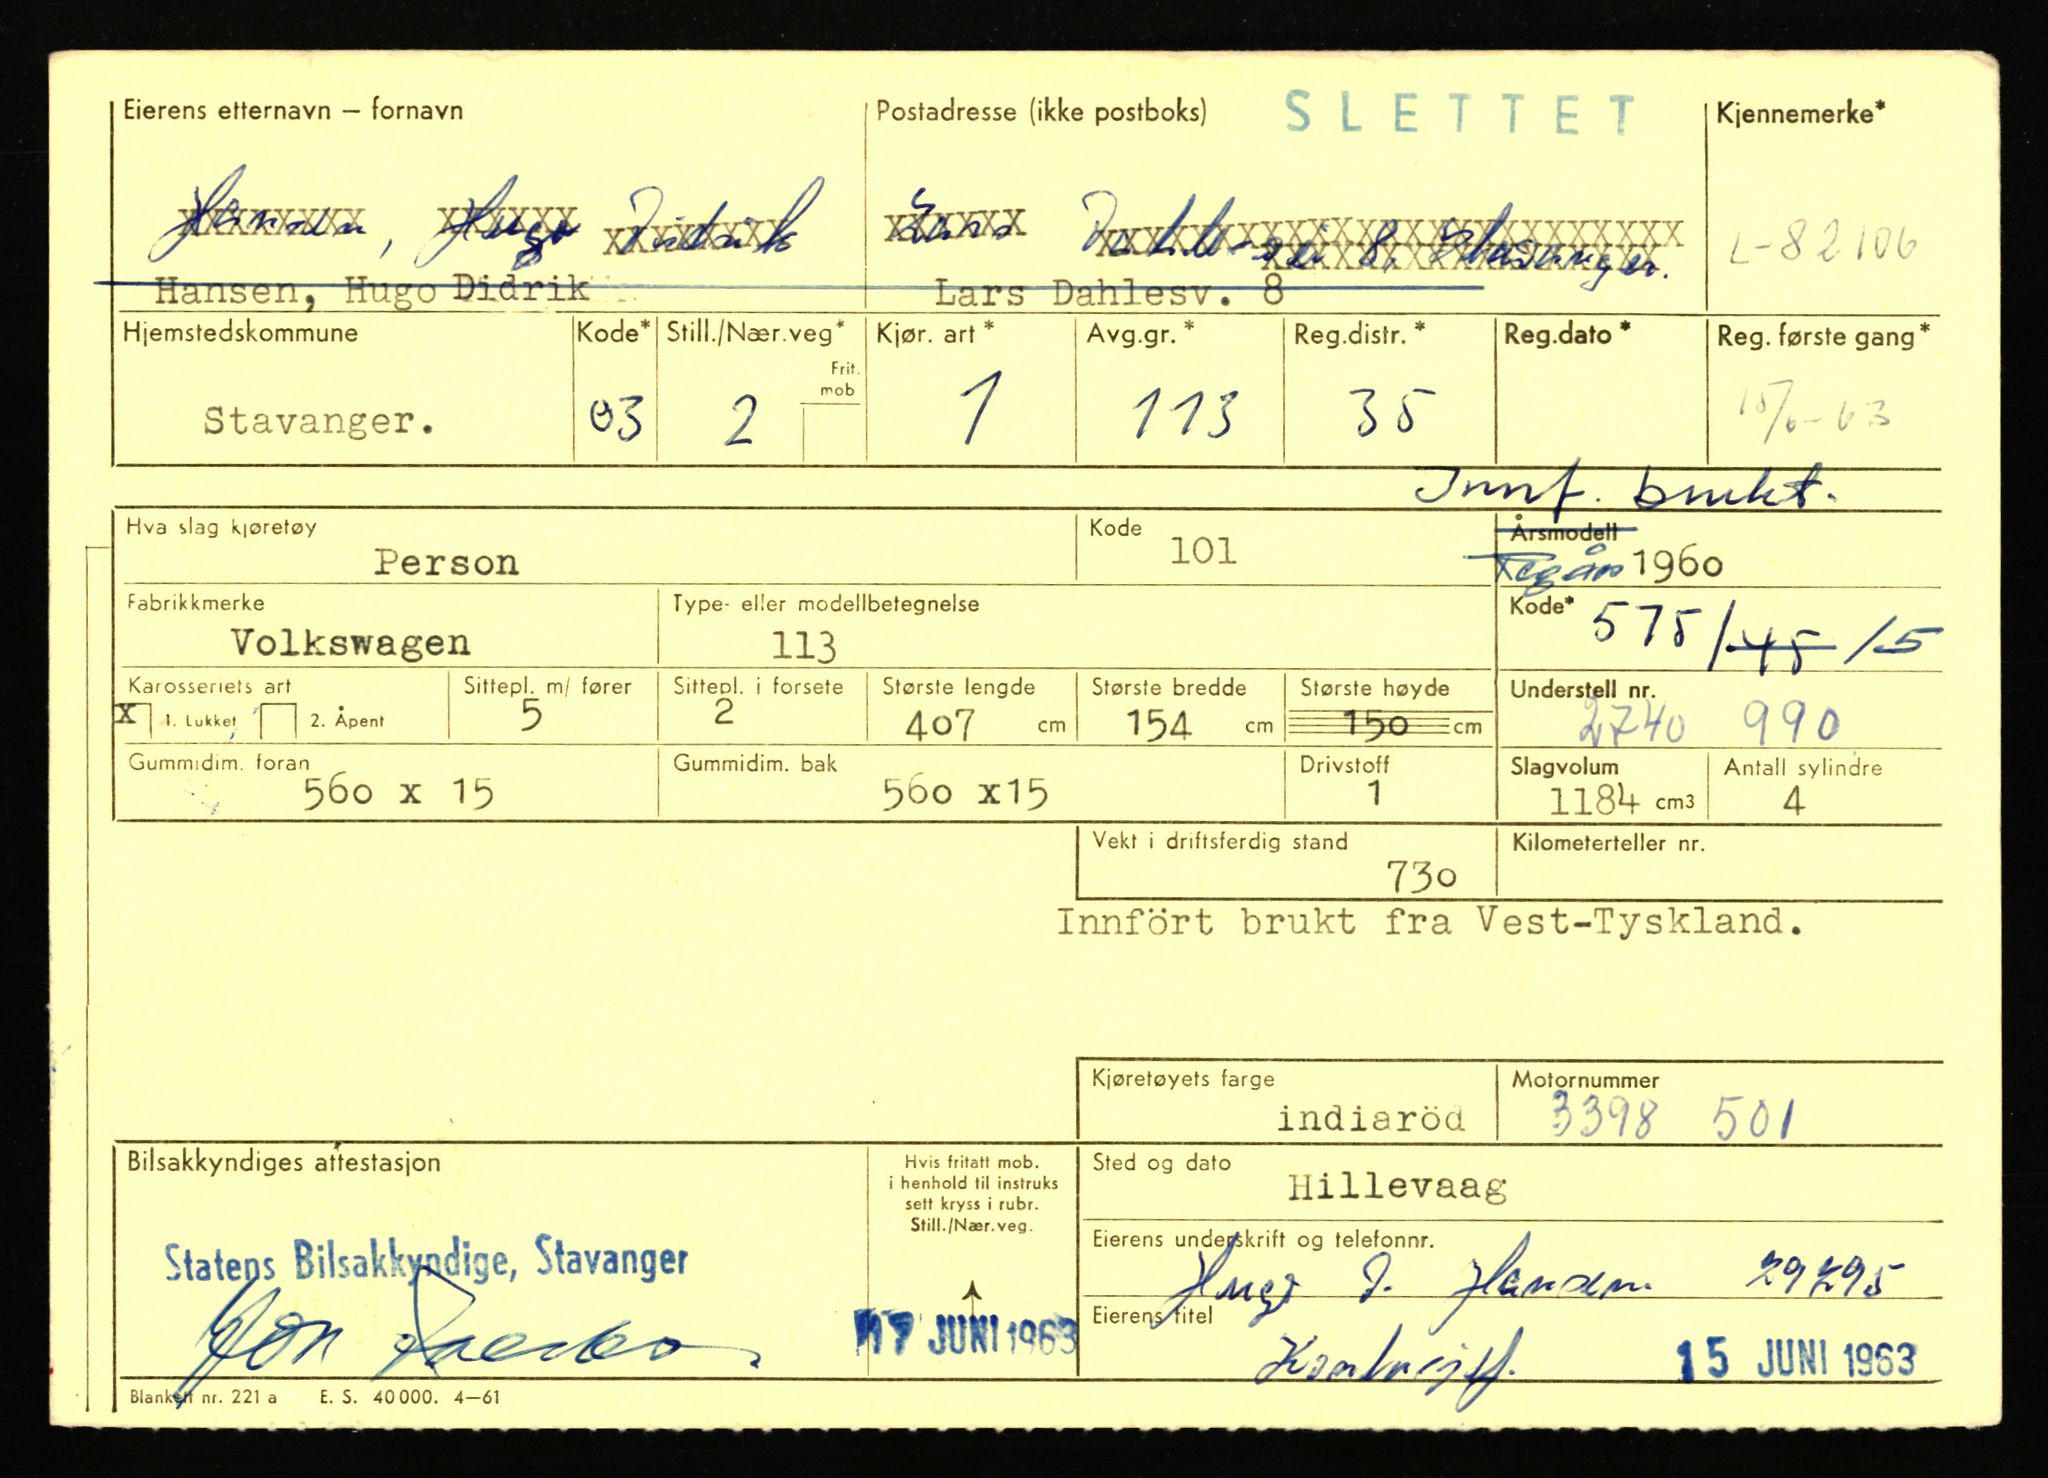 Eierens etternavn – fornavn
Postadresse (ikke postboks)
SLETTET
Kjennemerke*
Hansen, Hugo Didrik
Lars Dahles vei 8, Stavanger.
L-82106
Hansen, Hugo Didrik
Lars Dahlesv. 8
Hjemstedskommune
Kode*
Still./Nær.veg*
Kjør. art*
Avg.gr.*
Reg.distr.*
Reg.dato*
Reg. første gang*
Frit. mob
Stavanger.
03
2
1
113
35
15/6-63
Innf. brukt.
Hva slag kjøretøy
Person
Kode
101
Årsmodell
Regår 1960
Fabrikkmerke
Volkswagen
Type- eller modellbetegnelse
113
Kode*
575/45/5
Karosseriets art
X 1. Lukket 2. Åpent
Sittepl. m/ fører
5
Sittepl. i forsete
2
Største lengde
407 cm
Største bredde
154 cm
Største høyde
150 cm
Understell nr.
2740 990
Gummidim. foran
560 x 15
Gummidim. bak
560 x15
Drivstoff
1
Slagvolum
1184 cm3
Antall sylindre
4
Vekt i driftsferdig stand
730
Kilometerteller nr.
Innfört brukt fra Vest-Tyskland.
Kjøretøyets farge
indiaröd
Motornummer
3398 501
Bilsakkyndiges attestasjon
Hvis fritatt mob.
i henhold til instruks
sett kryss i rubr.
Still./Nær.veg.
Sted og dato
Hillevaag
Statens Bilsakkyndige, Stavanger
Eierens underskrift og telefonnr.
Hugo D. Hansen 29295
17 JUNI 1963
Eierens titel
15 JUNI 1963
Blankett nr. 221 a E. S. 40 000. 4–61